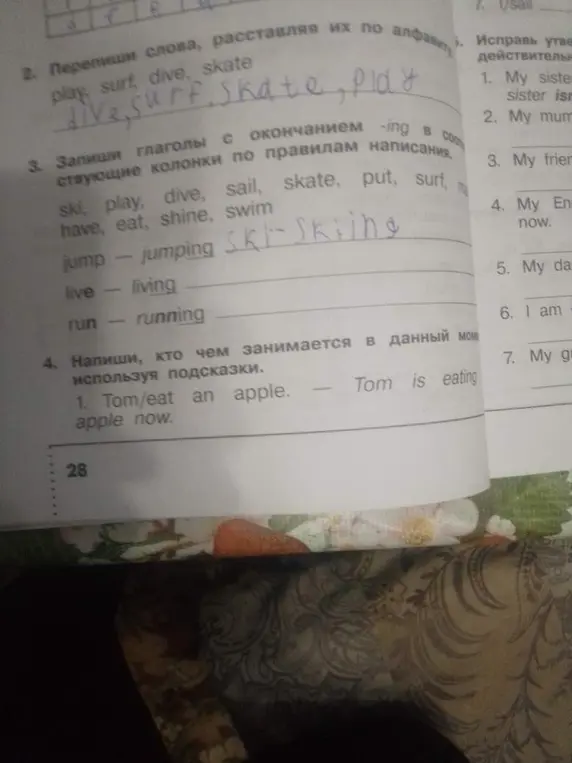 2. Перепиши слова, расставляя их по алфавиту.
play, surf, dive, skate
dive, surf, skate, play
3. Запиши глаголы с окончанием -ing в соот
ствующие колонки по правилам написания.
ski, play, dive, sail, skate, put, surf,
have, eat, shine, swim
jump — jumping ski-skiing
live — living
run — running
4. Напиши, кто чем занимается в данный мом
используя подсказки.
1. Tom/eat an apple. — Tom is eating
apple now.
28
7. I/sail
Исправь утве
действительн
1. My siste
sister isn
2. My mum
3. My frien
4. My En
now.
5. My da
6. I am
7. My g